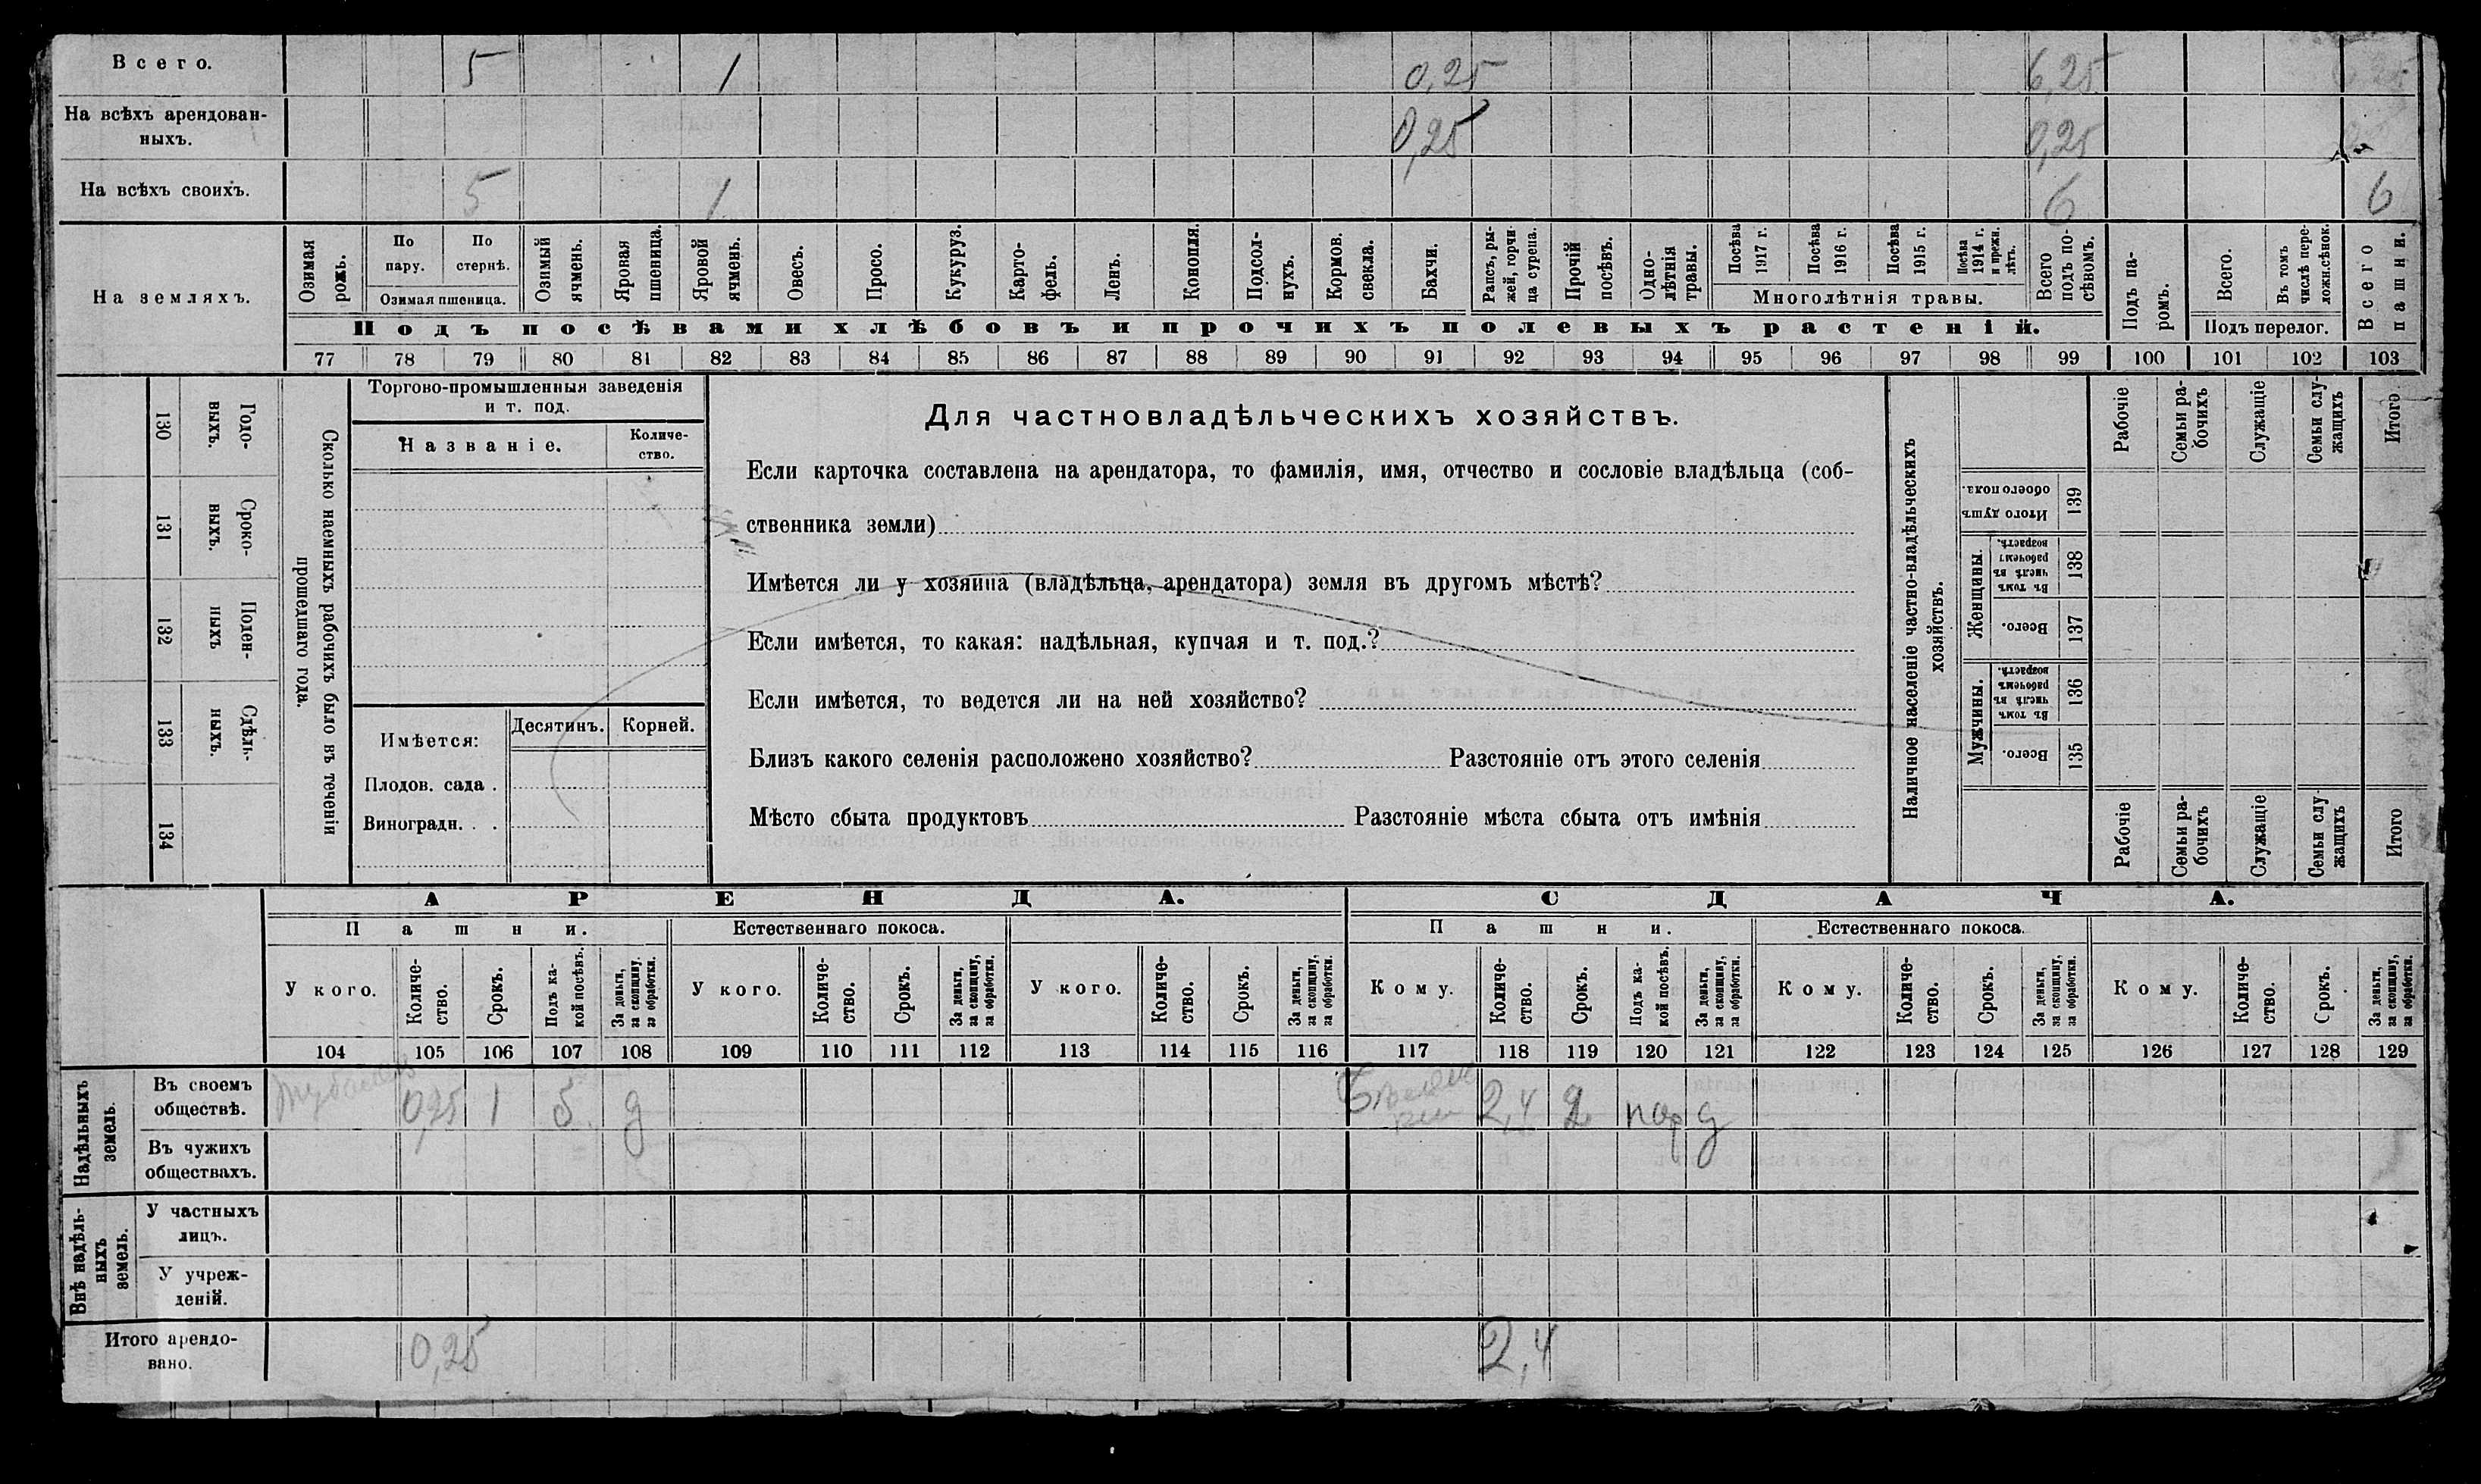 Всего. 5 1 0,25 6,25
На всѣхъ арендован-
ныхъ. 0,25 0,25
На всѣхъ своихъ. 5 1 6 6
На земляхъ.
Озимая рожь.
По пару.
По стернѣ.
Озимая пшеница.
Озимый ячмень.
Яровая пшеница.
Яровой ячмень.
Овесъ.
Просо.
Кукуруз.
Карто-
фель.
Ленъ.
Конопля.
Подсол-
нухъ.
Кормов. свекла.
Бахчи.
Рапсъ, ры-
жей, горчи
ца сурепа.
Прочій посѣвъ.
Одно-
лѣтнія
травы.
Посѣва 1917 г.
Посѣва 1916 г.
Посѣва 1915 г.
Посѣва
1914 г.
и прежн.
лѣтъ.
Многолѣтнія травы.
Всего
подъ по-
сѣвомъ.
Подъ посѣвами хлѣбовъ и прочихъ полевыхъ растеній.
Подъ па-
ромъ.
Всего.
Въ томъ
числѣ пере-
ложн.сѣнок.
Подъ перелог.
Всего пашни.
77 78 79 80 81 82 83 84 85 86 87 88 89 90 91 92 93 94 95 96 97 98 99 100 101 102 103
130 Годо-
выхъ.
131 Сроко-
выхъ.
132 Поден-
ныхъ
133 Сдѣль-
ныхъ.
134
Сколько наемныхъ рабочихъ было въ теченіи
прошедшаго года.
Торгово-промышленныя заведенія
и т. под.
Названіе.
Количе-
ство.
Имѣется:
Десятинъ. Корней.
Плодов. сада .
Виноградн. . .
Для частновладѣльческихъ хозяйствъ.
Если карточка составлена на арендатора, то фамилія, имя, отчество и сословіе владѣльца (соб-
ственника земли)
Имѣется ли у хозяина (владѣльца, арендатора) земля въ другомъ мѣстѣ?
Если имѣется, то какая: надѣльная, купчая и т. под.?
Если имѣется, то ведется ли на ней хозяйство?
Близъ какого селенія расположено хозяйство? Разстояніе отъ этого селенія
Мѣсто сбыта продуктовъ Разстояніе мѣста сбыта отъ имѣнія
Наличное населеніе частно-владѣльческихъ
хозяйствъ.
Рабочіе
Семьи ра-
бочихъ
Служащіе
Семьи слу-
жащихъ
Итого
Итого душъ
обоего пола.
139
Женщины.
Въ томъ
числѣ въ
рабочемъ
возрастѣ.
138
Всего.
137
Мужчины.
Въ томъ
числѣ въ
рабочемъ
возрастѣ.
136
Всего.
135
Рабочіе
Семьи ра-
бочихъ
Служащіе
Семьи слу-
жащихъ
Итого
АРЕНДА. СДАЧА.
Пашни. Естественнаго покоса. Пашни. Естественнаго покоса.
У кого.
Количе-
ство.
Срокъ.
Подъ ка-
кой посѣвъ.
За деньги,
за скопщину,
за обработки.
У кого.
Количе-
ство.
Срокъ.
За деньги,
за скопщину,
за обработки.
У кого.
Количе-
ство.
Срокъ.
За деньги,
за скопщину,
за обработки.
Кому.
Количе-
ство.
Срокъ.
Подъ ка-
кой посѣвъ.
За деньги,
за скопщину,
за обработки.
Кому.
Количе-
ство.
Срокъ.
За деньги,
за скопщину,
за обработки.
Кому.
Количе-
ство.
Срокъ.
За деньги,
за скопщину,
за обработки.
104 105 106 107 108 109 110 111 112 113 114 115 116 117 118 119 120 121 122 123 124 125 126 127 128 129
Надѣльныхъ
земель.
Въ своемъ
обществѣ. 0,25 1 б д 2,4 2 пар д
Въ чужихъ
обществахъ.
Внѣ надѣль-
ныхъ
земель.
У частныхъ
лицъ.
У учреж-
деній.
Итого арендо-
вано. 0,25 2,4